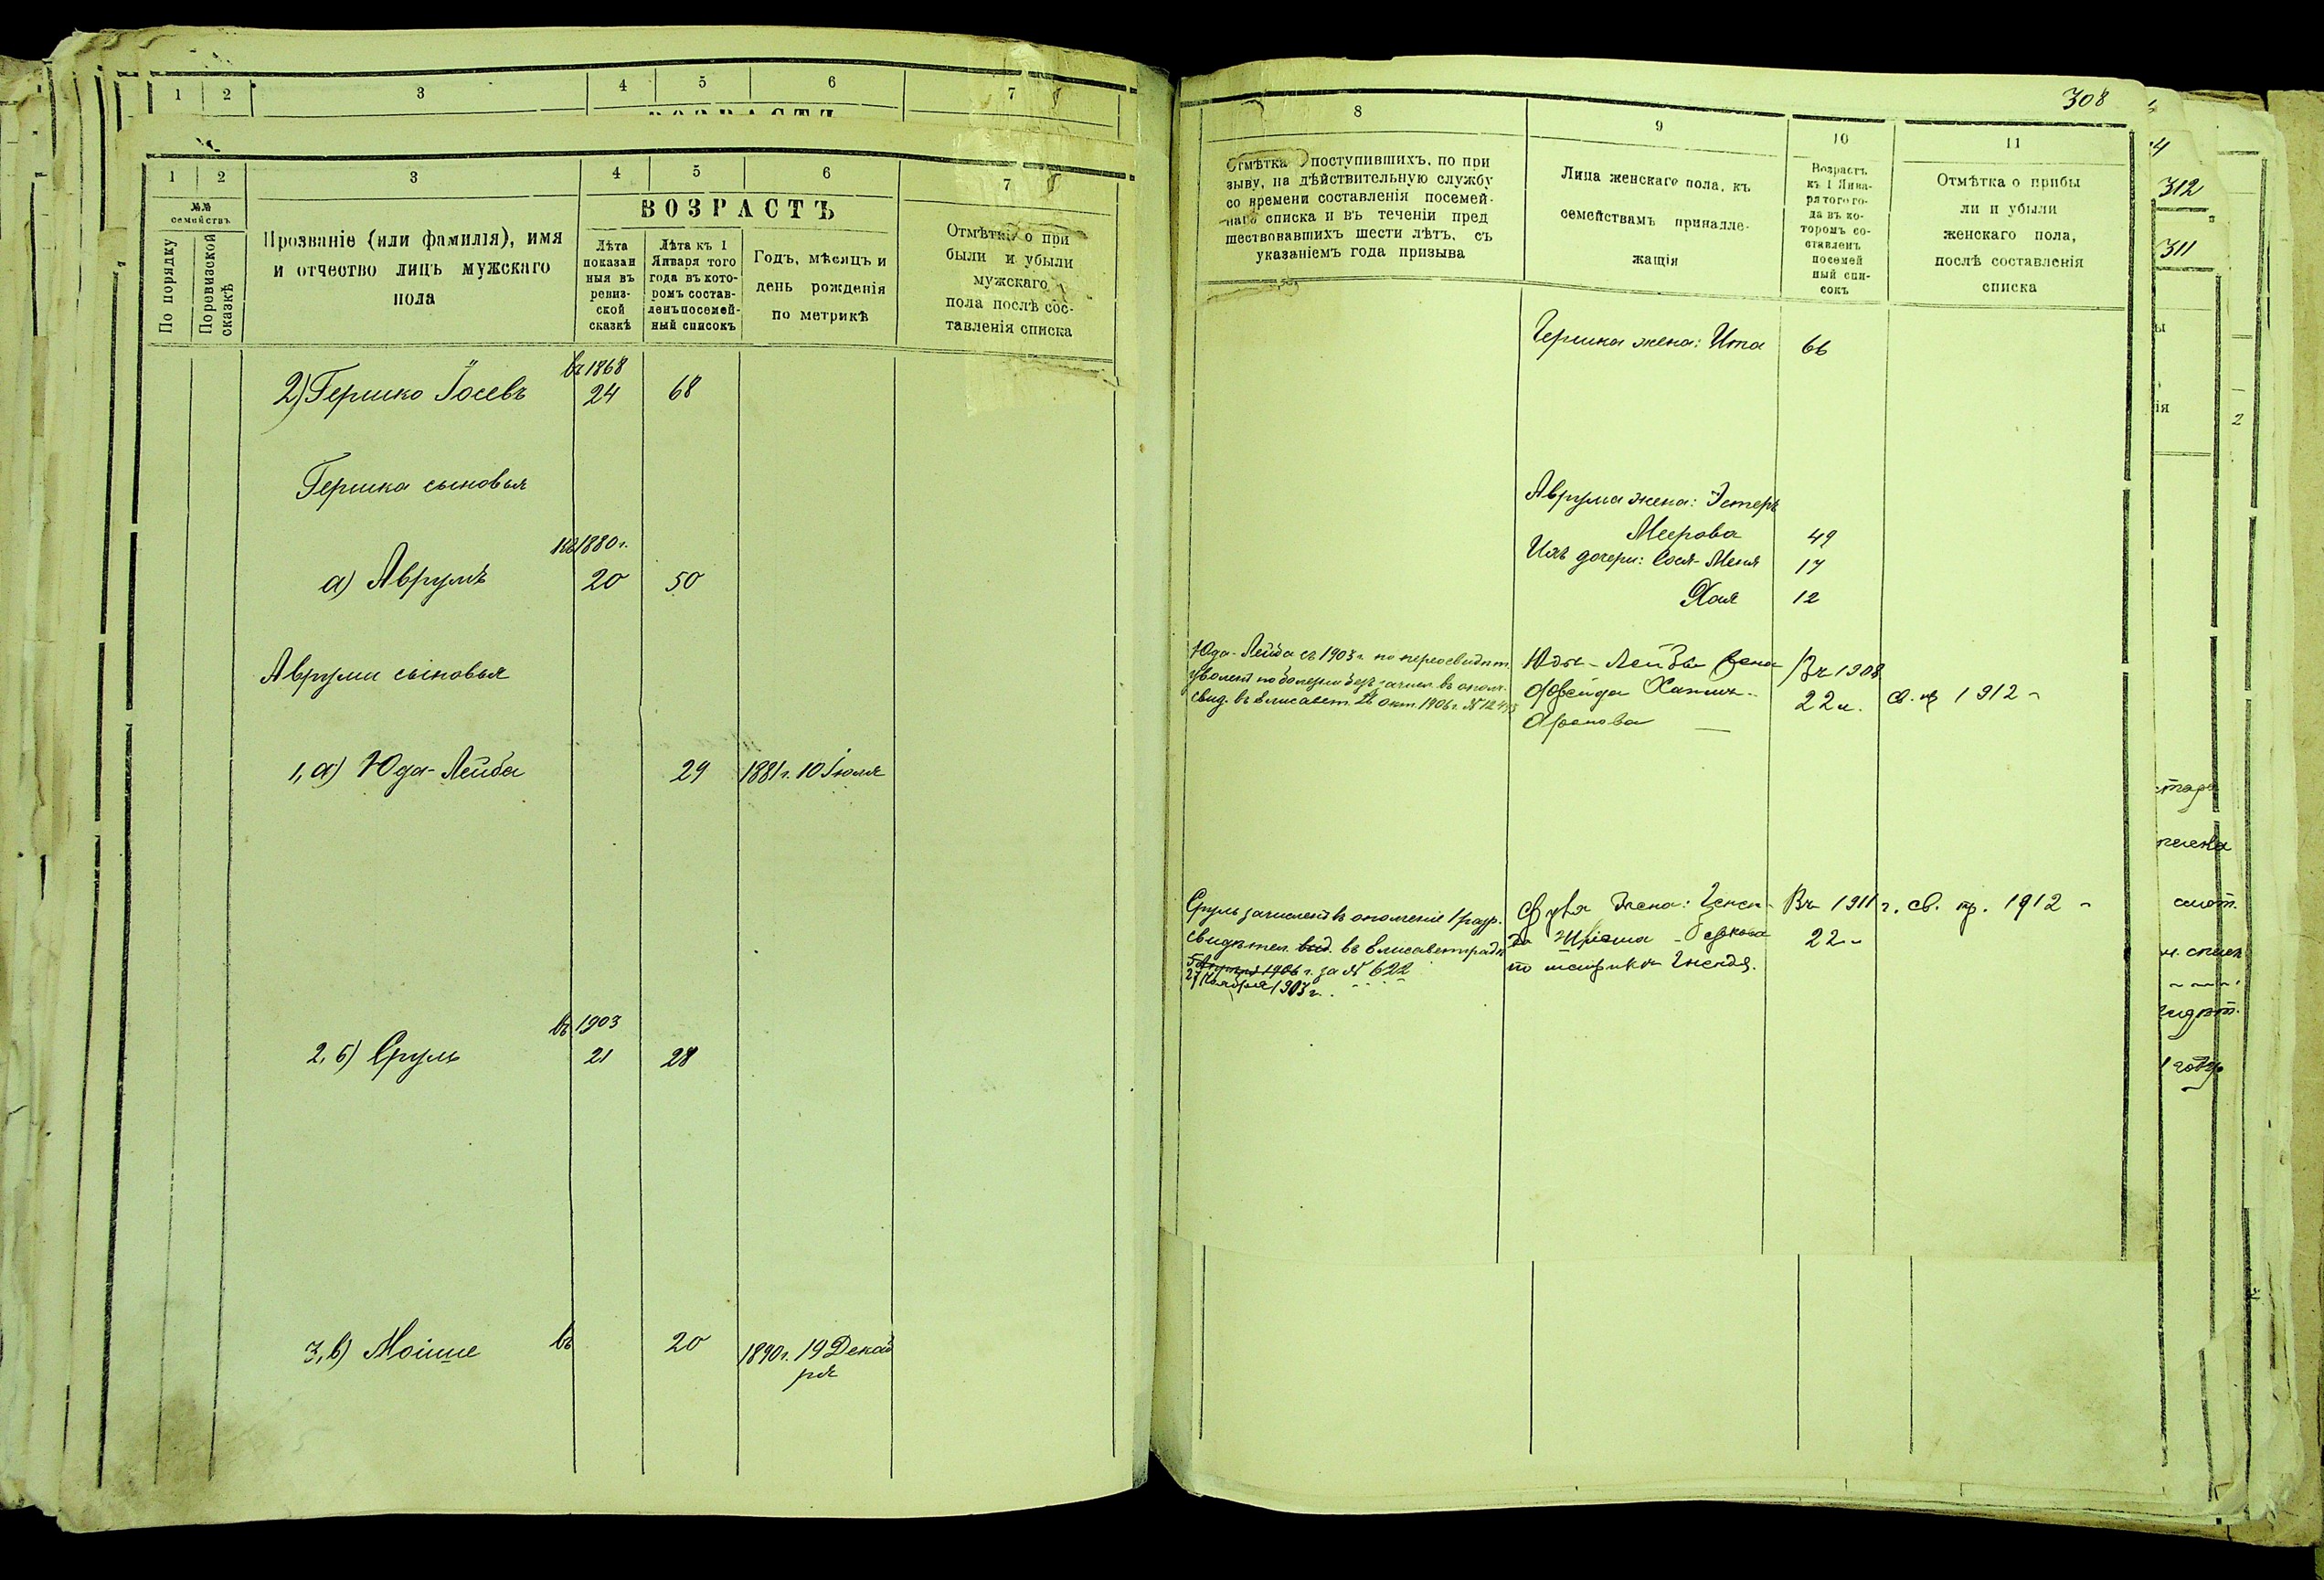 1 2 3 4 5 6 7
1 2 3 4 5 6 7
№№ семействъ
По порядку
Поревизской сказкѣ
Прозваніе (или фамилія), имя
и отчество лицъ мужскаго
пола
ВОЗРАСТЪ
Лѣта
показан
ныя въ
ревиз-
ской
сказкѣ
Лѣта къ 1
Января того
года въ кото-
ромъ состав-
ленъ посемей-
ный списокъ
Годъ, мѣсяцъ и
день рожденія
по метрикѣ
Отмѣтка о при
были и убыли
мужскаго
пола послѣ сос-
тавленія списка
въ 1868
2) Гершко Іосевъ 24 68
Гершка сыновья
1880 г.
а) Аврумъ 20 50
Аврума сыновья
1, а) Юда-Лейба 29 1881 г. 10 Іюля
въ 1903
2, б) Сруль 21 28
3, в) Моише въ 20 1890 г. 19 Декаб
ря
308
8 9 10 11
Отмѣтка о поступившихъ, по при
зыву, на дѣйствительную службу
со времени составленія посемей-
наго списка и въ теченіи пред
шествовавшихъ шести лѣтъ, съ
указаніемъ года призыва
Лица женскаго пола, къ
семействамъ принадле-
жащія
Возрастъ
къ 1 Янва-
ря того го-
да въ ко-
торомъ со-
ставленъ
посемей
ный спи-
сокъ
Отмѣтка о прибы
ли и убыли
женскаго пола,
послѣ составленія
списка
Гершка жена: Ита 66
Аврума жена: Эстеръ
Меерова 49
Ихъ дочери: Сося-Меня 17
Хая 12
Юда-Лейба съ 1903 г. по переосвидѣт.
уволенъ по болезни безъ зачисл. въ ополч.
свид. въ Елисавет. 28 окт. 1906 г. №
Юды-Лейбы жена
Фрейда Ханна
Аронова
Въ 1908
22 л.
св. 1912
Сруль зачисленъ въ ополченіе 1 разр.
свидѣтел. выд. въ Елисаветградѣ
1906 г. за № 622
27 Ноября 1903 г.
Сруля жена: Генен-
да
по метрикѣ Гненда.
Въ 1911 г. св. пр. 1912
22
312
311
ы
ія
2